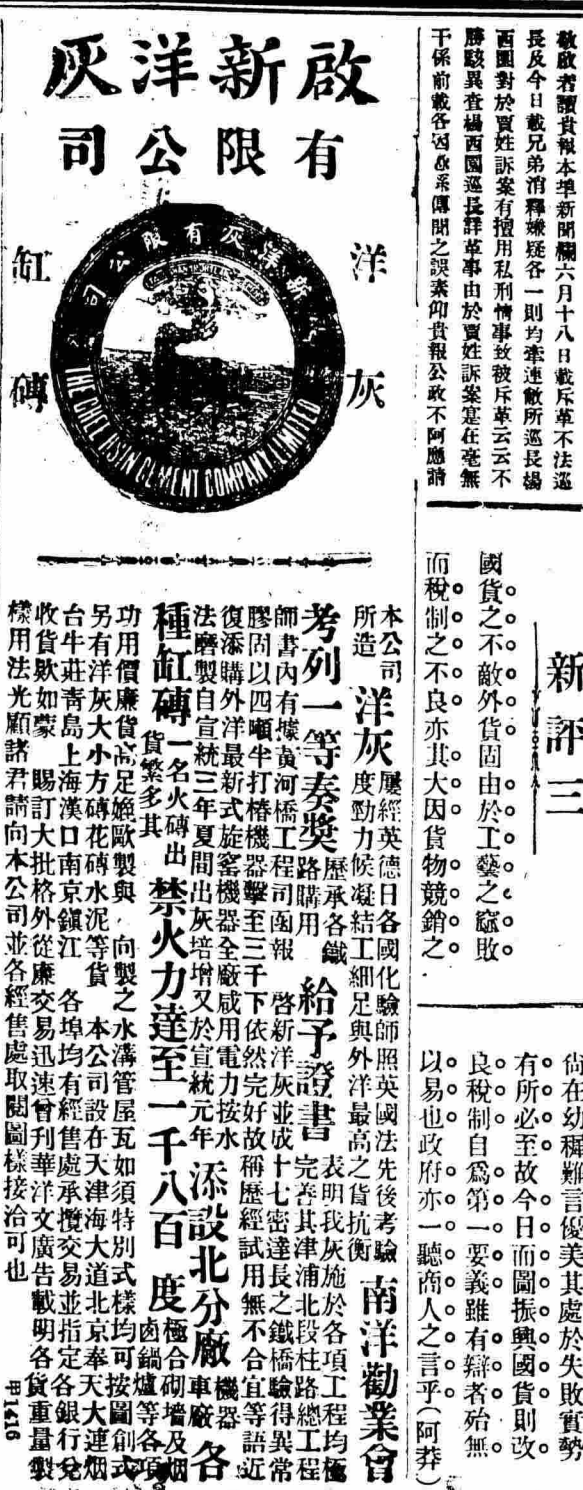 敬啟者讀貴報本埠新聞欄六月十八日載斥革不法巡
長及今日載兄弟消釋嫌疑各一則均牽連敝所巡長楊
西園對於賈姓訴案有擅用私刑情事致被斥革云云不
勝駭異查楊西園巡長詳革事由於賈姓訴案寔在毫無
干係前載各因系傳聞之誤素仰貴報公政不阿應請
新評三
國貨之不敵外貨固由於工藝之窳敗
而稅制之不良亦其大因貨物競銷之
尙在幼穉難言優美其處於失敗實勢
有所必至故今日而圖振興國貨則改
良稅制自爲第一要義雖有辯者殆無
以易也政府亦一聽商人之言乎(阿莽)
啟新洋灰
有限公司
洋灰
缸磚
新洋灰有限公司
THE CHEE HSIN CEMENT COMPANY LIMITED
本公司所造
洋灰
屢經英德日各國化驗師照英國法先後考驗
度勁力候凝結工細足與外洋最高之貨抗衡
南洋勸業會
考列一等奏獎
歷承各鐵路購用
給予證書
表明我灰施於各項工程均極
完善其津浦北段柱路總工程
師書內有據黃河橋工程司函報 啓新洋灰並成十七密達長之鐵橋驗得異常
膠固以四噸半打樁機器擊至三千下依然完好故稱歷經試用無不合宜等語近
復添購外洋最新式旋窰機器全廠咸用電力按水
法磨製自宣統三年夏間出灰培增又於宣統元年
添設北分廠
機器車廠
各
種缸磚
一名火磚出
貨繁多其
禁火力達至一千八百度
極合砌墻及烟
鹵鍋爐等各項
功用價廉貨高足媲歐製與 向製之水溝管屋瓦如須特別式樣均可按圖創式
另有洋灰大小方磚花磚水泥等貨 本公司設在天津海大道北京奉天大連烟
台牛莊靑島上海漢口南京鎭江 各埠均有經售處承攬交易並指定各銀行兌
收貨欵如蒙 賜訂大批格外從廉交易迅速曾刊華洋文廣告載明各貨重量製
樣用法光顧諸君請向本公司並各經售處取閱圖樣接洽可也
甲1416